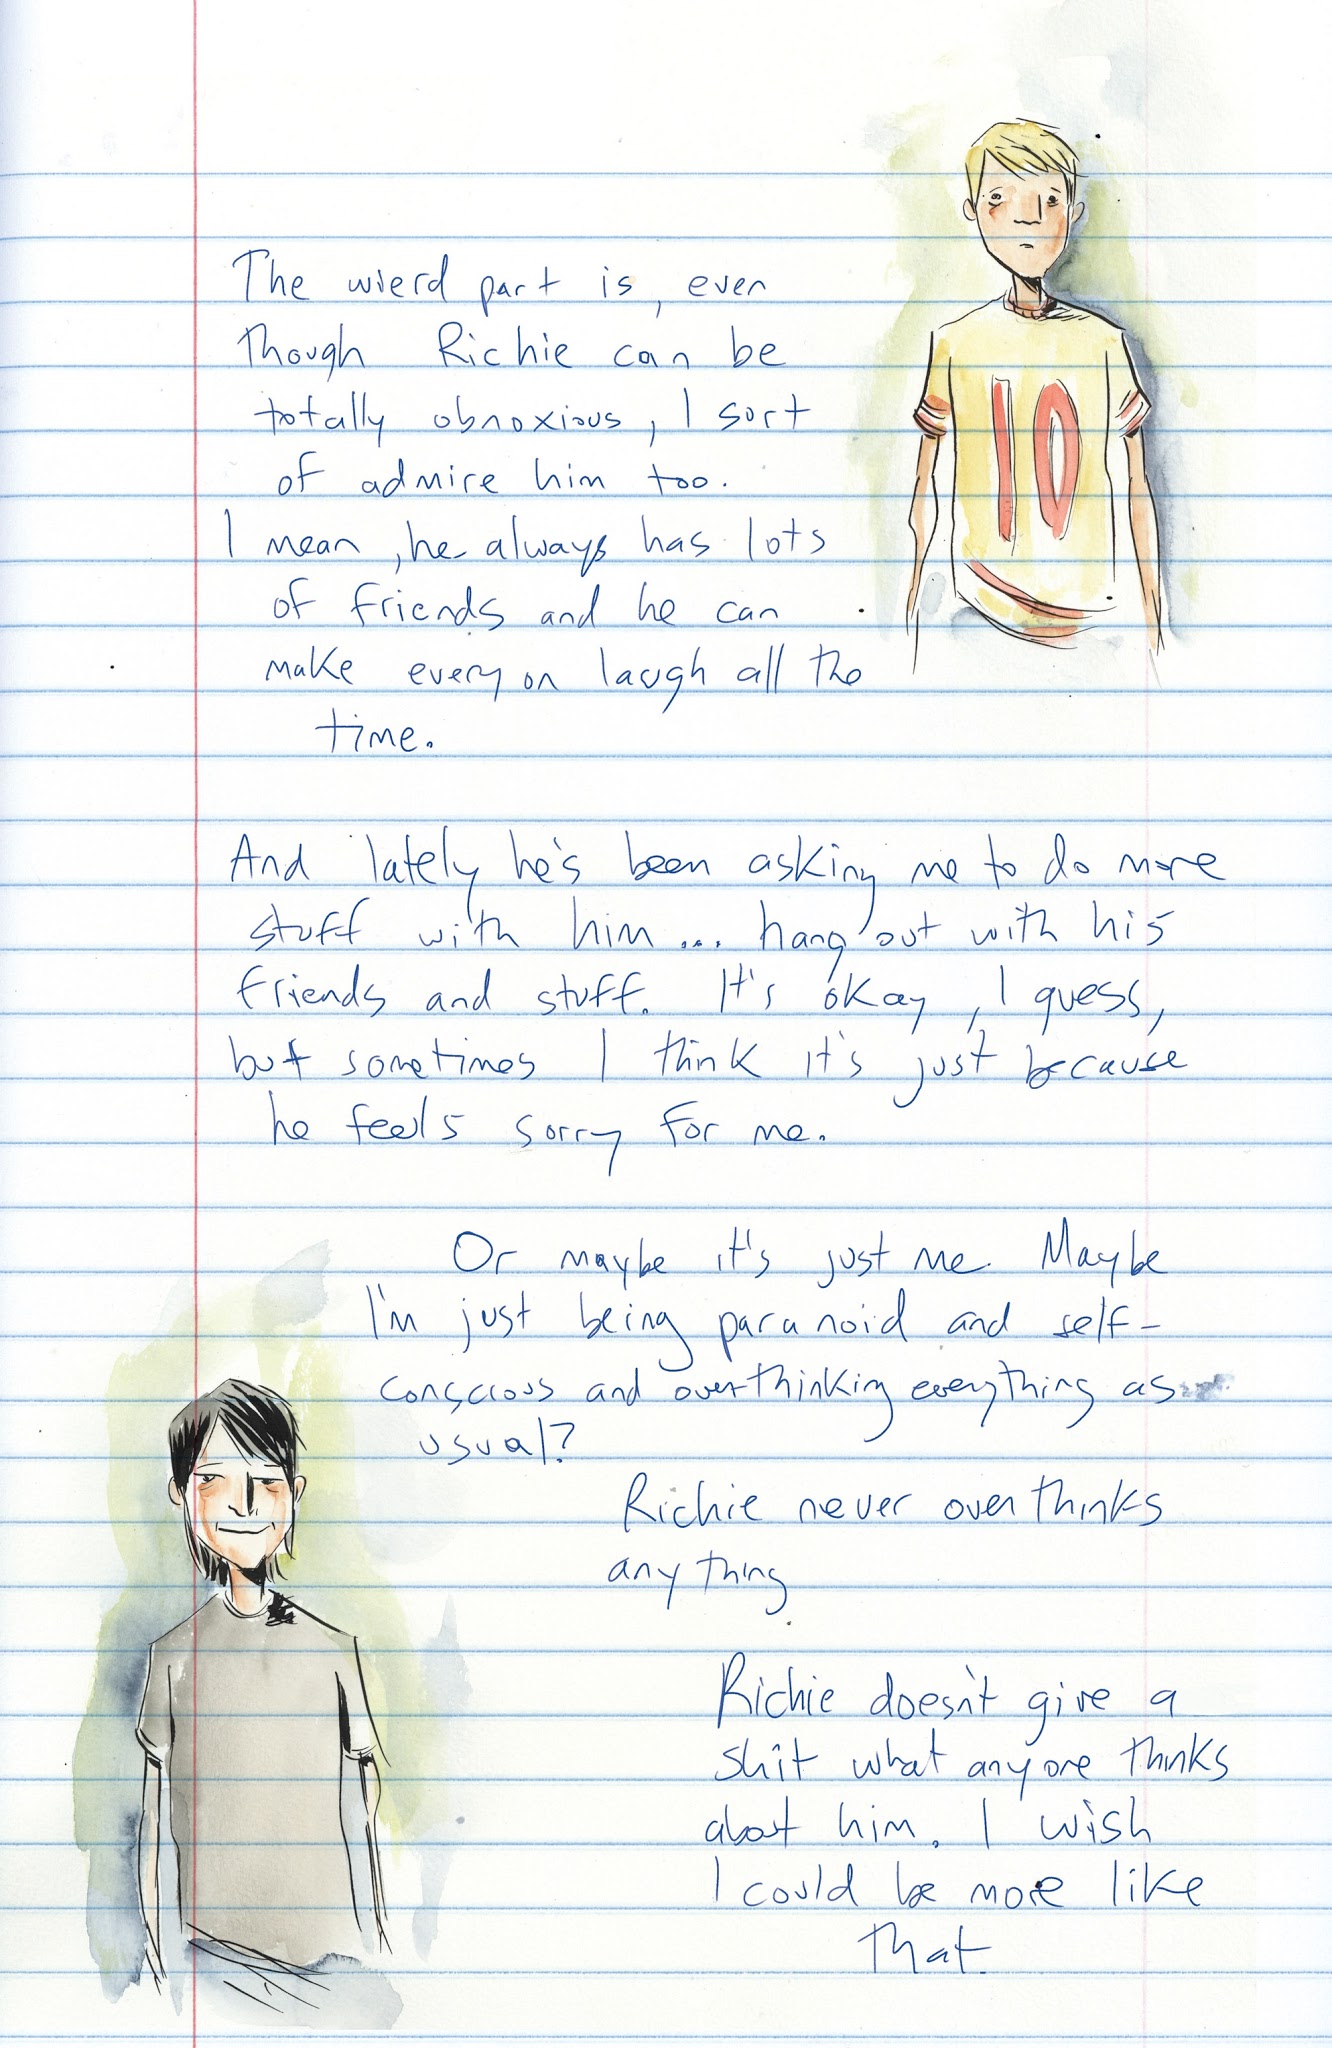 10
The wierd part is, even
though Richie can be
totally obnoxious, I sort
of admire him too.
I mean, he always has lots
of friends and he can
make everyon laugh all the
time.
And lately he's been asking me to do more
stuff with him... hang out with his
friends and stuff. It's okay, I guess,
but sometimes I think it's just because
he feels sorry for me.
Or maybe it's just me. Maybe
I'm just being paranoid and self-
conscious and overthinking everything as
usual?
Richie never overthinks
anything
Richie doesn't give a
shit what anyone thinks
about him. I wish
I could be more like
that.